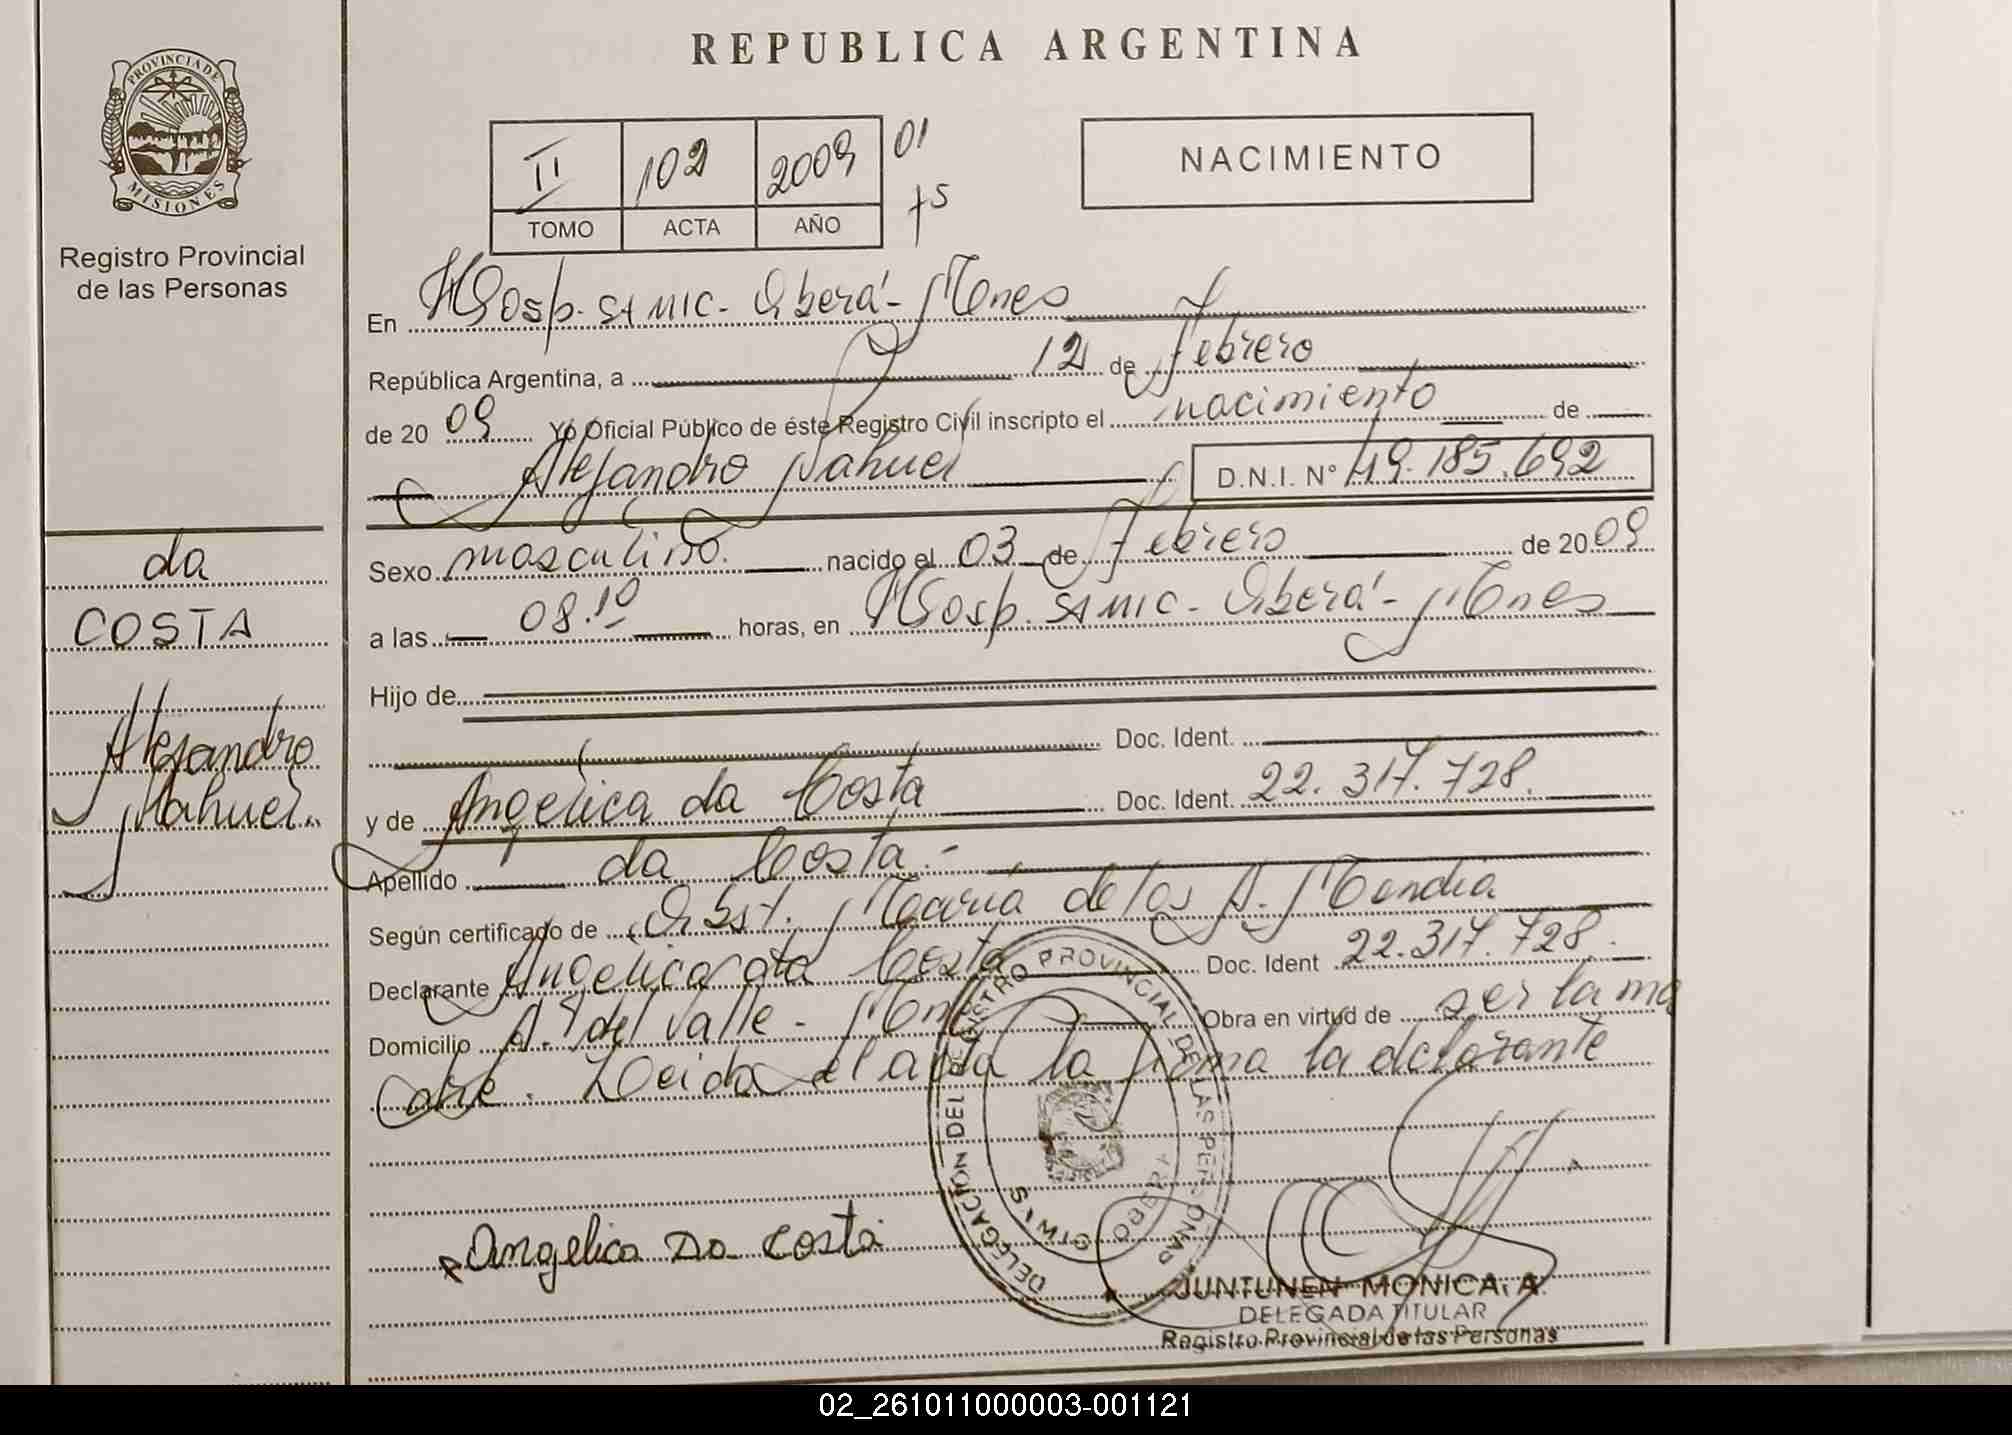 REPUBLICA ARGENTINA
PROVINCIA DE
MISIONES
Registro Provincial
de las Personas
II 102 2009 01
75
TOMO ACTA AÑO
NACIMIENTO
En Hosp. SAMIC - Oberá - Mnes
República Argentina, a 12 de Febrero
de 2009 Yo Oficial Público de éste Registro Civil inscripto el nacimiento de
Alejandro Nahuel D.N.I. Nº 49.185.692
da
COSTA
Alejandro
Nahuel.
Sexo masculino. nacido el 03 de Febrero de 2009
a las 08.10 horas, en Hosp. SAMIC - Oberá - Mnes
Hijo de
Doc. Ident.
y de Angélica da Costa Doc. Ident. 22.317.728.
Apellido da Costa.-
Según certificado de Obst. María de los A. Mendia
Declarante Angelica da Costa Doc. Ident 22.317.728.
Domicilio A. del Valle - Mnes Obra en virtud de ser la ma
dre. Leida el acta la firma la declarante
DELEGACION DEL REGISTRO PROVINCIAL DE LAS PERSONAS
OBERA
Angelica Da Costa
JUNTUNEN MONICA A.
DELEGADA TITULAR
Registro Provincial de las Personas
02_261011000003-001121